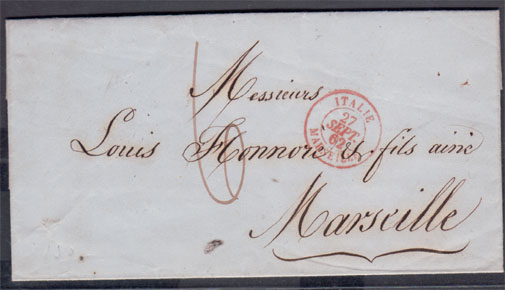 Messieurs
Louis Honnoré & fils ainé
Marseille
ITALIE
27
SEPT.
62
6